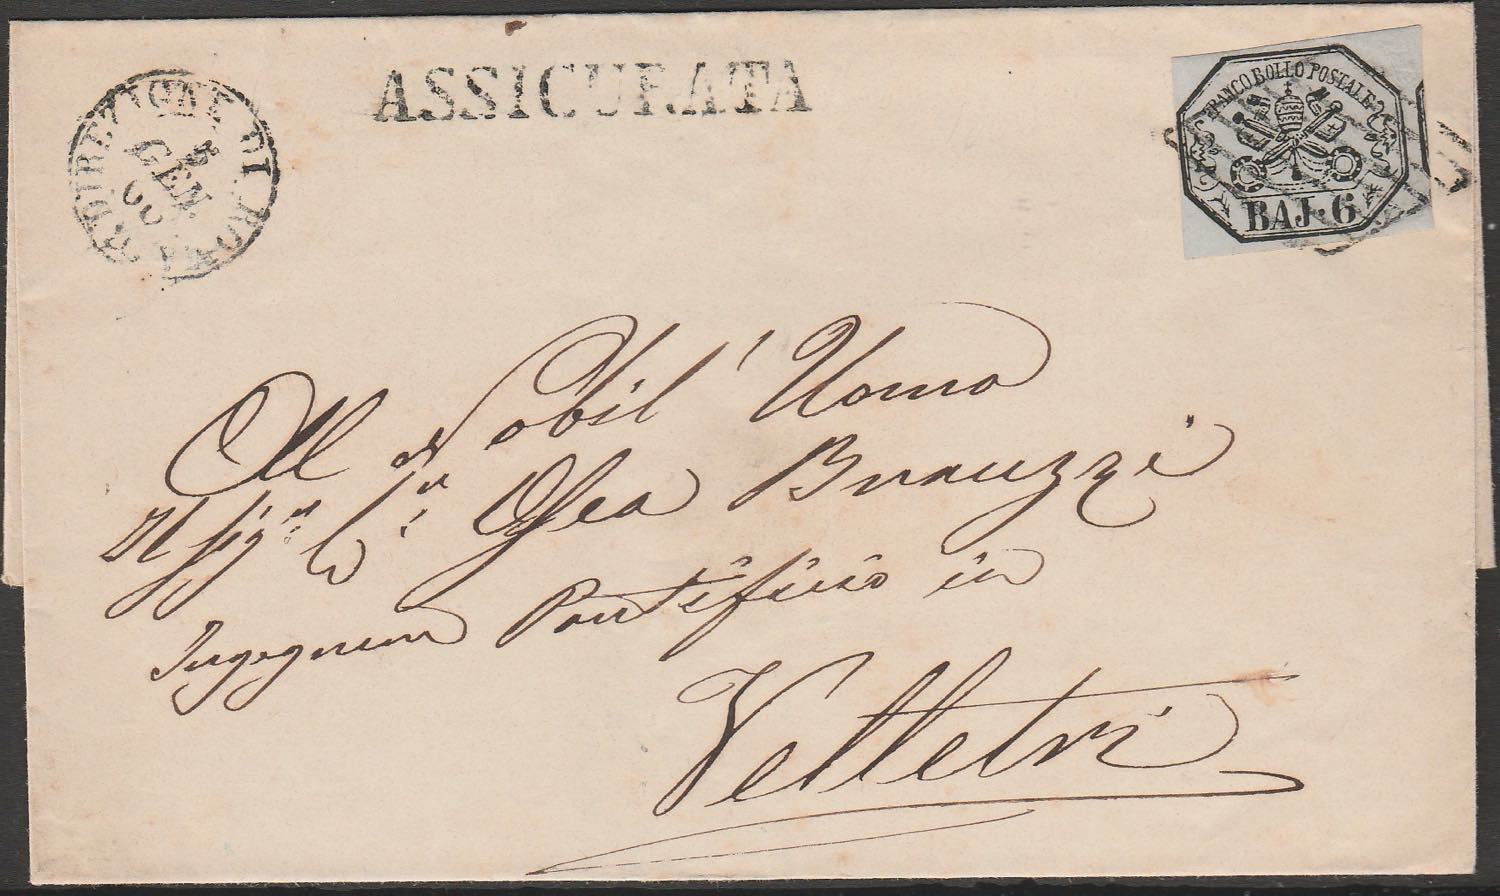 ASSICURATA
DIREZIONE DI ROMA
GEN
FRANCO BOLLO POSTALE
BAJ. 6
Al Nobil' Uomo
Il Sigr
Ingegnere Pontificio in
Velletri